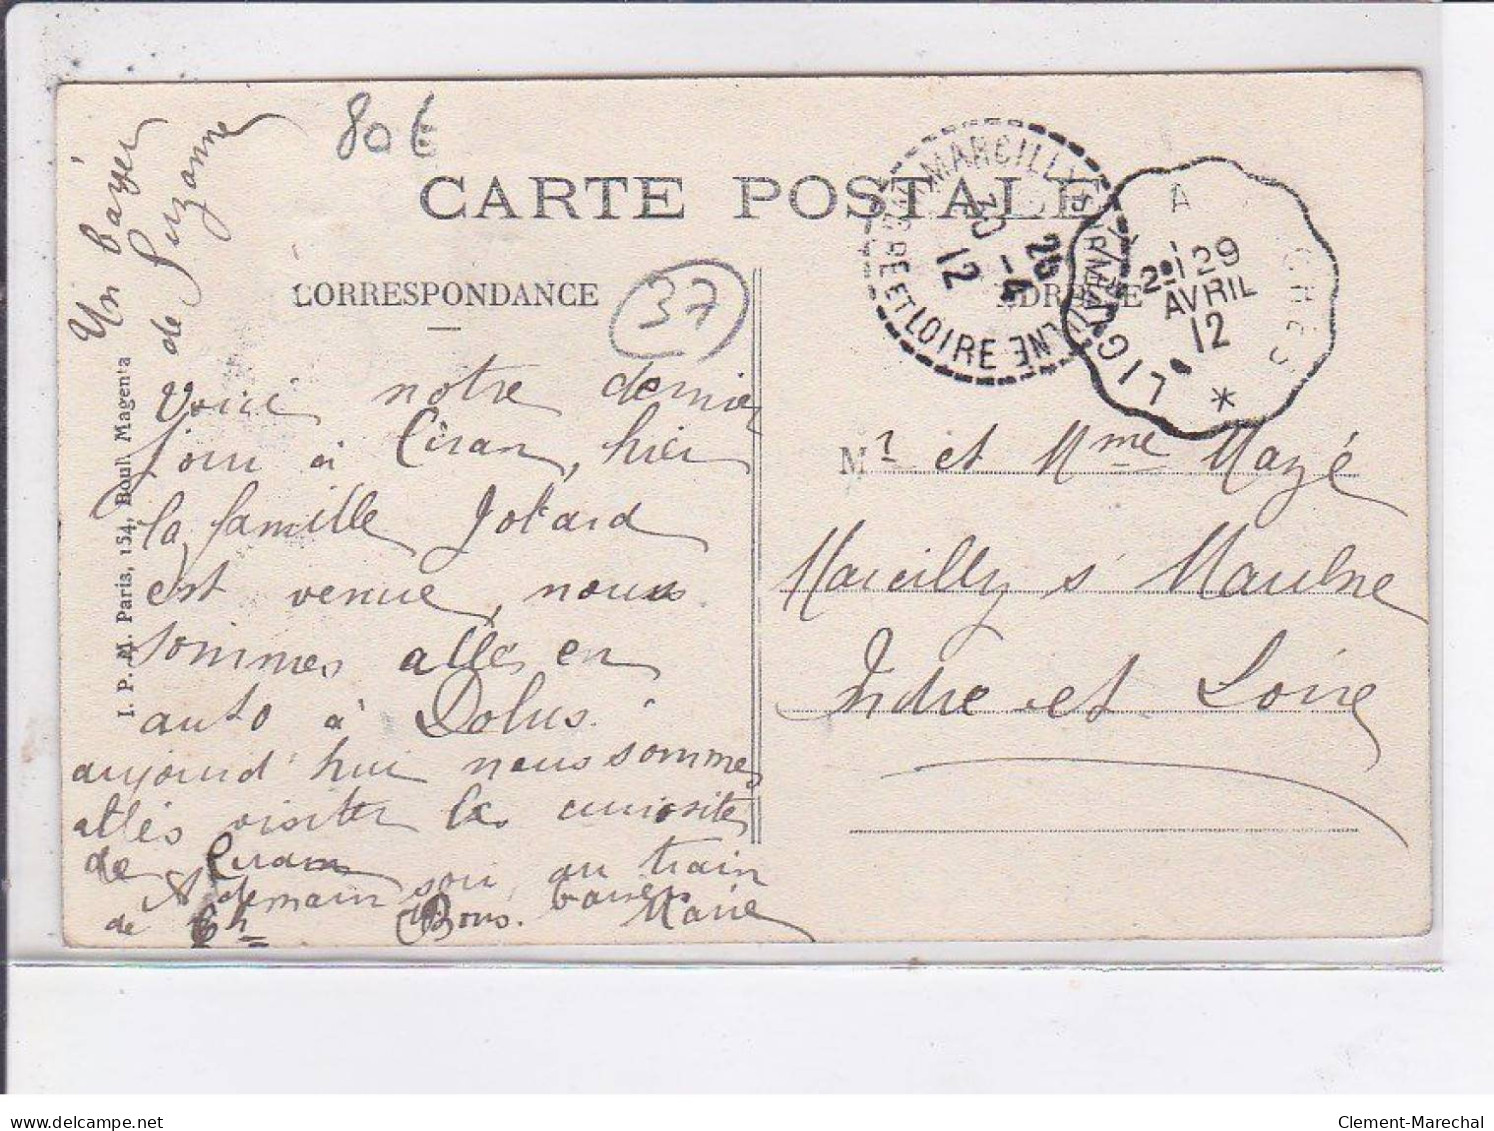 80€
CARTE POSTALE
CORRESPONDANCE
ADRESSE
37
MARCILLY SUR MAULNE
INDRE ET LOIRE
30 - 4
12
LIGRÉ
A
2e 29
AVRIL
12
*
Un bayer
de Suzanne
Voici notre dernier
jour à Ciran, hier
la famille Jokard
est venue, nous
sommes allés en
auto à Dolus.
aujourd'hui nous sommes
allés visiter les curiosités
de Ciran
A demain soir, au train
de 6h Bons baisers Marie
Mr et Mme Mazé
Marcilly s Maulne
Indre et Loire
I. P. M. Paris, 154, Boul. Magenta
Clement-Marechal